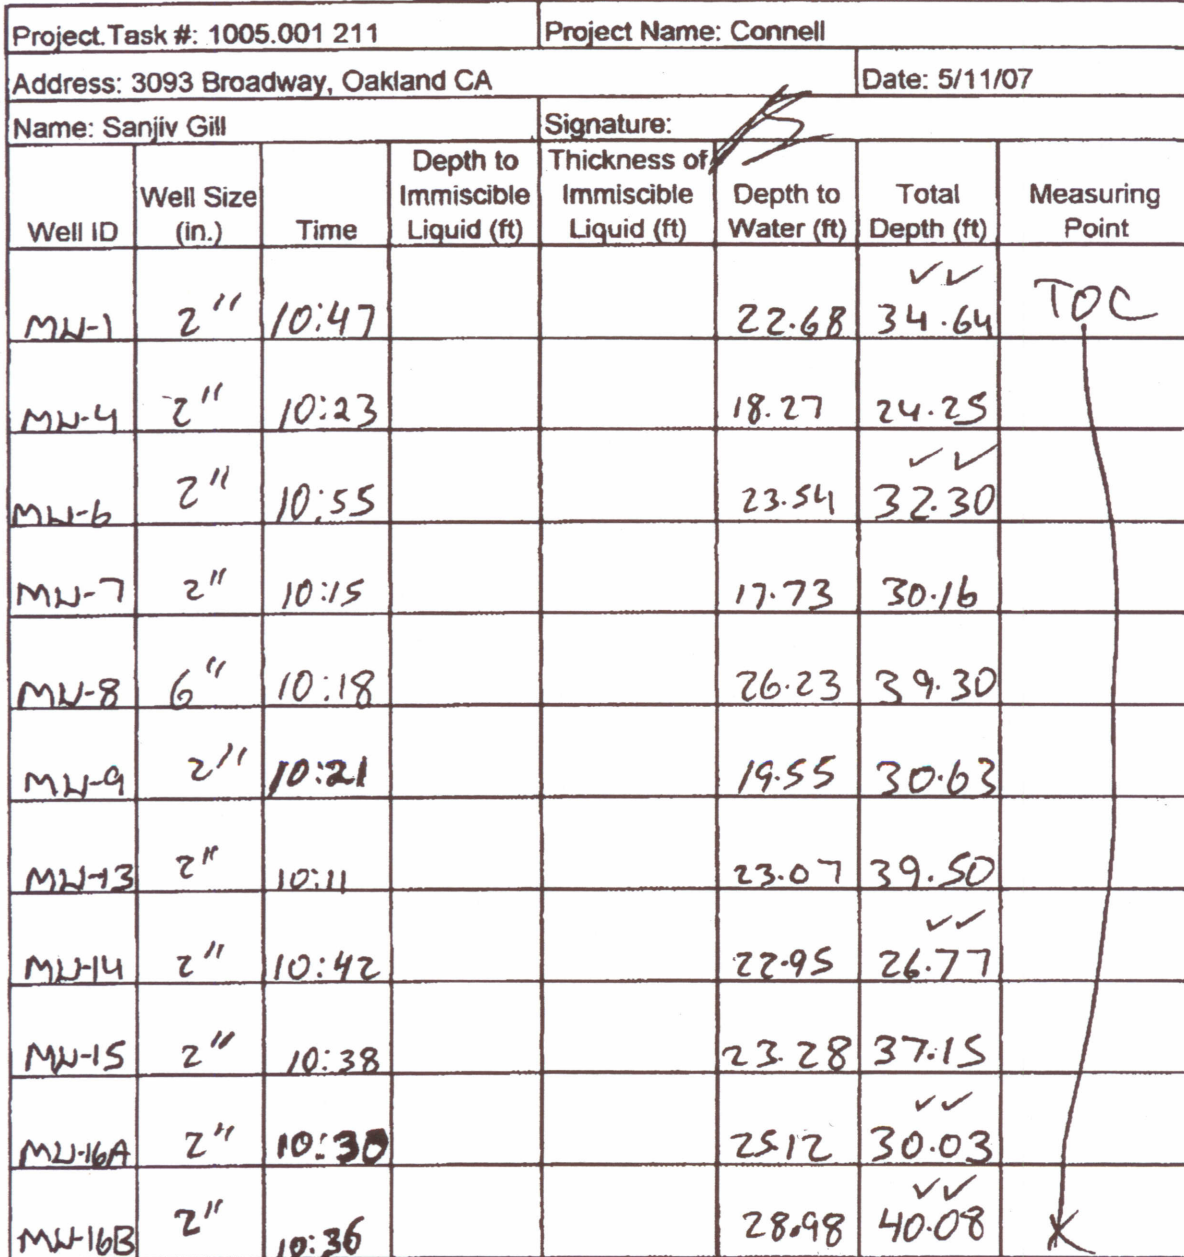 Project.Task #: 1005.001 211 Project Name: Connell
Address: 3093 Broadway, Oakland CA Date: 5/11/07
Name: Sanjiv Gill Signature:
Well ID Well Size (in.) Time Depth to Immiscible Liquid (ft) Thickness of Immiscible Liquid (ft) Depth to Water (ft) Total Depth (ft) Measuring Point
MW-1 2" 10:47 22.68 ✓✓ 34.64 TOC
MW-4 2" 10:23 18.27 24.25
MW-6 2" 10:55 23.54 ✓✓ 32.30
MW-7 2" 10:15 17.73 30.16
MW-8 6" 10:18 26.23 39.30
MW-9 2" 10:21 19.55 30.63
MW-13 2" 10:11 23.07 39.50
MW-14 2" 10:42 22.95 ✓✓ 26.77
MW-15 2" 10:38 23.28 37.15
MW-16A 2" 10:30 25.12 ✓✓ 30.03
MW-16B 2" 10:36 28.98 ✓✓ 40.08